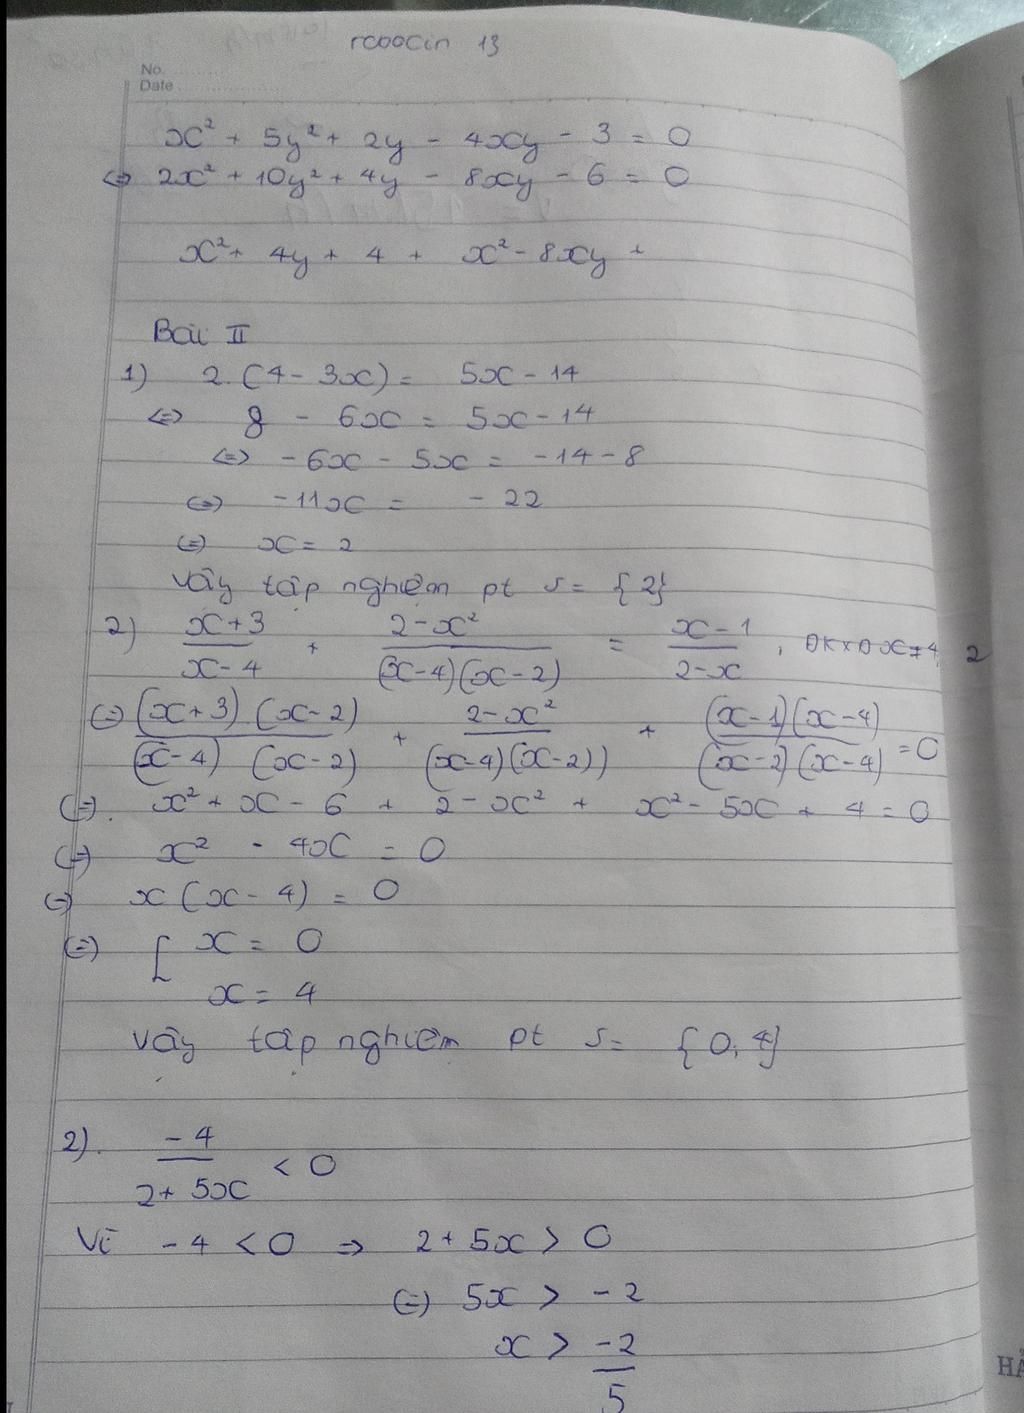 rcoocin 13
No.
Date
x² + 5y² + 2y - 4xy - 3 = 0
<=> 2x² + 10y² + 4y - 8xy - 6 = 0
x² + 4y + 4 + x² - 8xy +
Bài II
1) 2.(4 - 3x) = 5x - 14
<=> 8 - 6x = 5x - 14
<=> -6x - 5x = -14 - 8
<=> -11x = -22
<=> x = 2
Vậy tập nghiệm pt S = {2}
2) (x+3)/(x-4) + (2-x²)/((x-4)(x-2)) = (x-1)/(2-x), ĐKXĐ x ≠ 4, 2
<=> ((x+3)(x-2))/((x-4)(x-2)) + (2-x²)/((x-4)(x-2)) + ((x-1)(x-4))/((x-2)(x-4)) = 0
<=> x² + x - 6 + 2 - x² + x² - 5x + 4 = 0
<=> x² - 4x = 0
<=> x(x - 4) = 0
<=> [ x = 0
x = 4
Vậy tập nghiệm pt S = {0; 4}
2). -4/(2 + 5x) < 0
Vì -4 < 0 => 2 + 5x > 0
<=> 5x > -2
x > -2/5